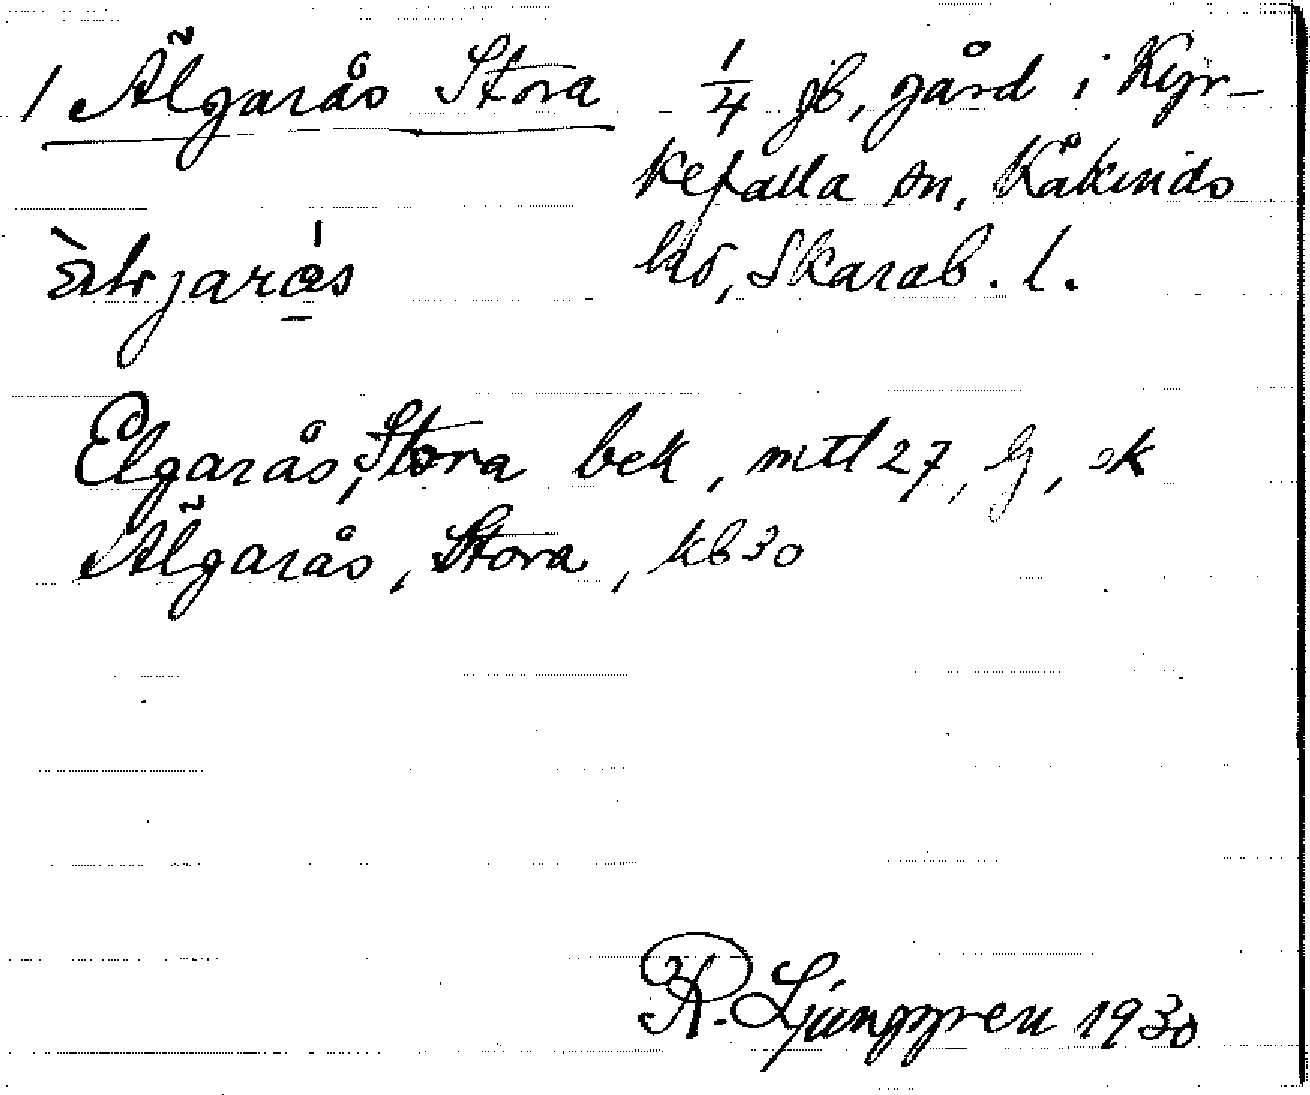 1 Älgarås Stora
1/4 jb, gård i Kyr-
kefalla sn, Kåkinds
hd, Skarab. l.
Elgarås, Stora bek, mtl 27, G, ek
Älgarås, Stora, kb 30
R. Ljunggren 1930